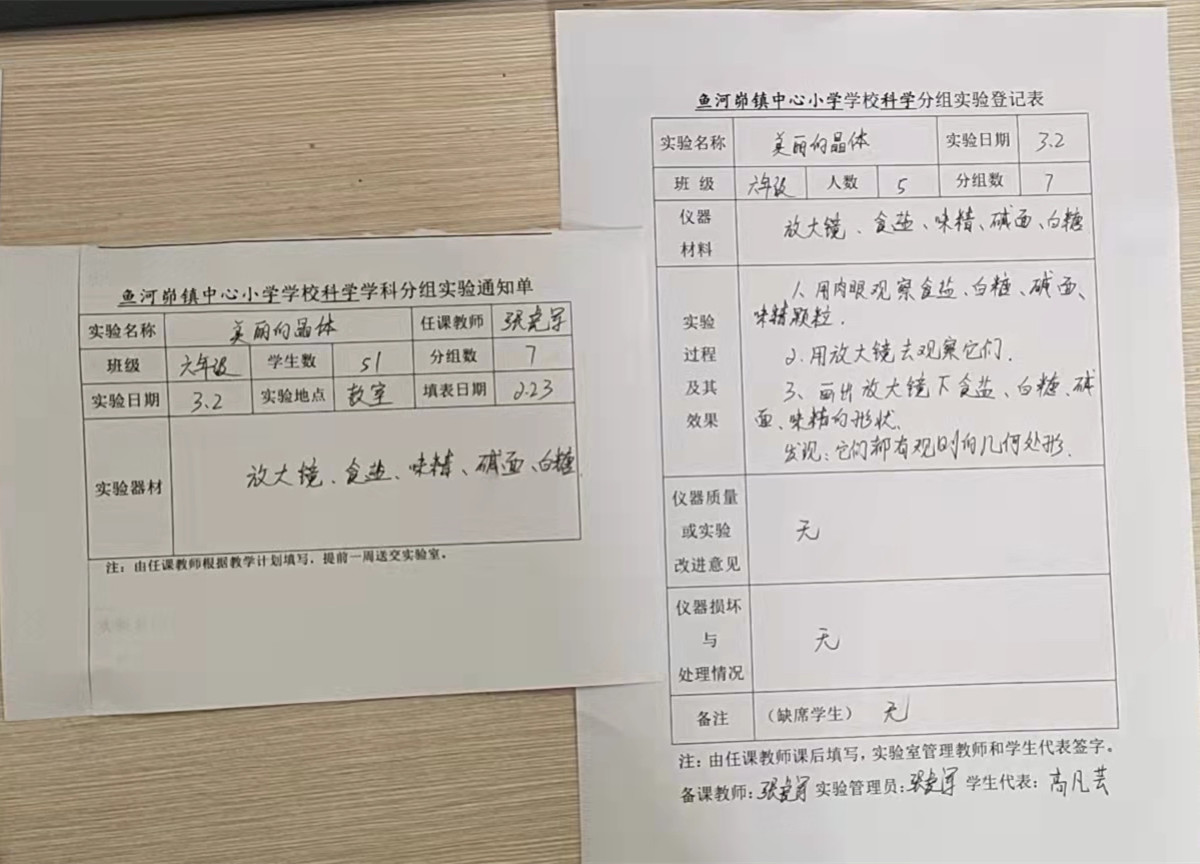 鱼河峁镇中心小学学校科学学科分组实验通知单
实验名称 美丽的晶体 任课教师
班级 六年级 学生数 51 分组数 7
实验日期 3.2 实验地点 教室 填表日期 2.23
实验器材 放大镜、食盐、味精、碱面、白糖
注：由任课教师根据教学计划填写，提前一周送交实验室。
鱼河峁镇中心小学学校科学分组实验登记表
实验名称 美丽的晶体 实验日期 3.2
班 级 六年级 人数 5 分组数 7
仪器
材料
放大镜、食盐、味精、碱面、白糖
实验
过程
及其
效果
1、用肉眼观察食盐、白糖、碱面、
味精颗粒.
2、用放大镜去观察它们.
3、画出放大镜下食盐、白糖、碱
面、味精的形状.
发现:它们都有观则的几何处形.
仪器质量
或实验
改进意见
无
仪器损坏
与
处理情况
无
备注 （缺席学生） 无
注：由任课教师课后填写，实验室管理教师和学生代表签字。
备课教师: 实验管理员: 学生代表: 高凡芸